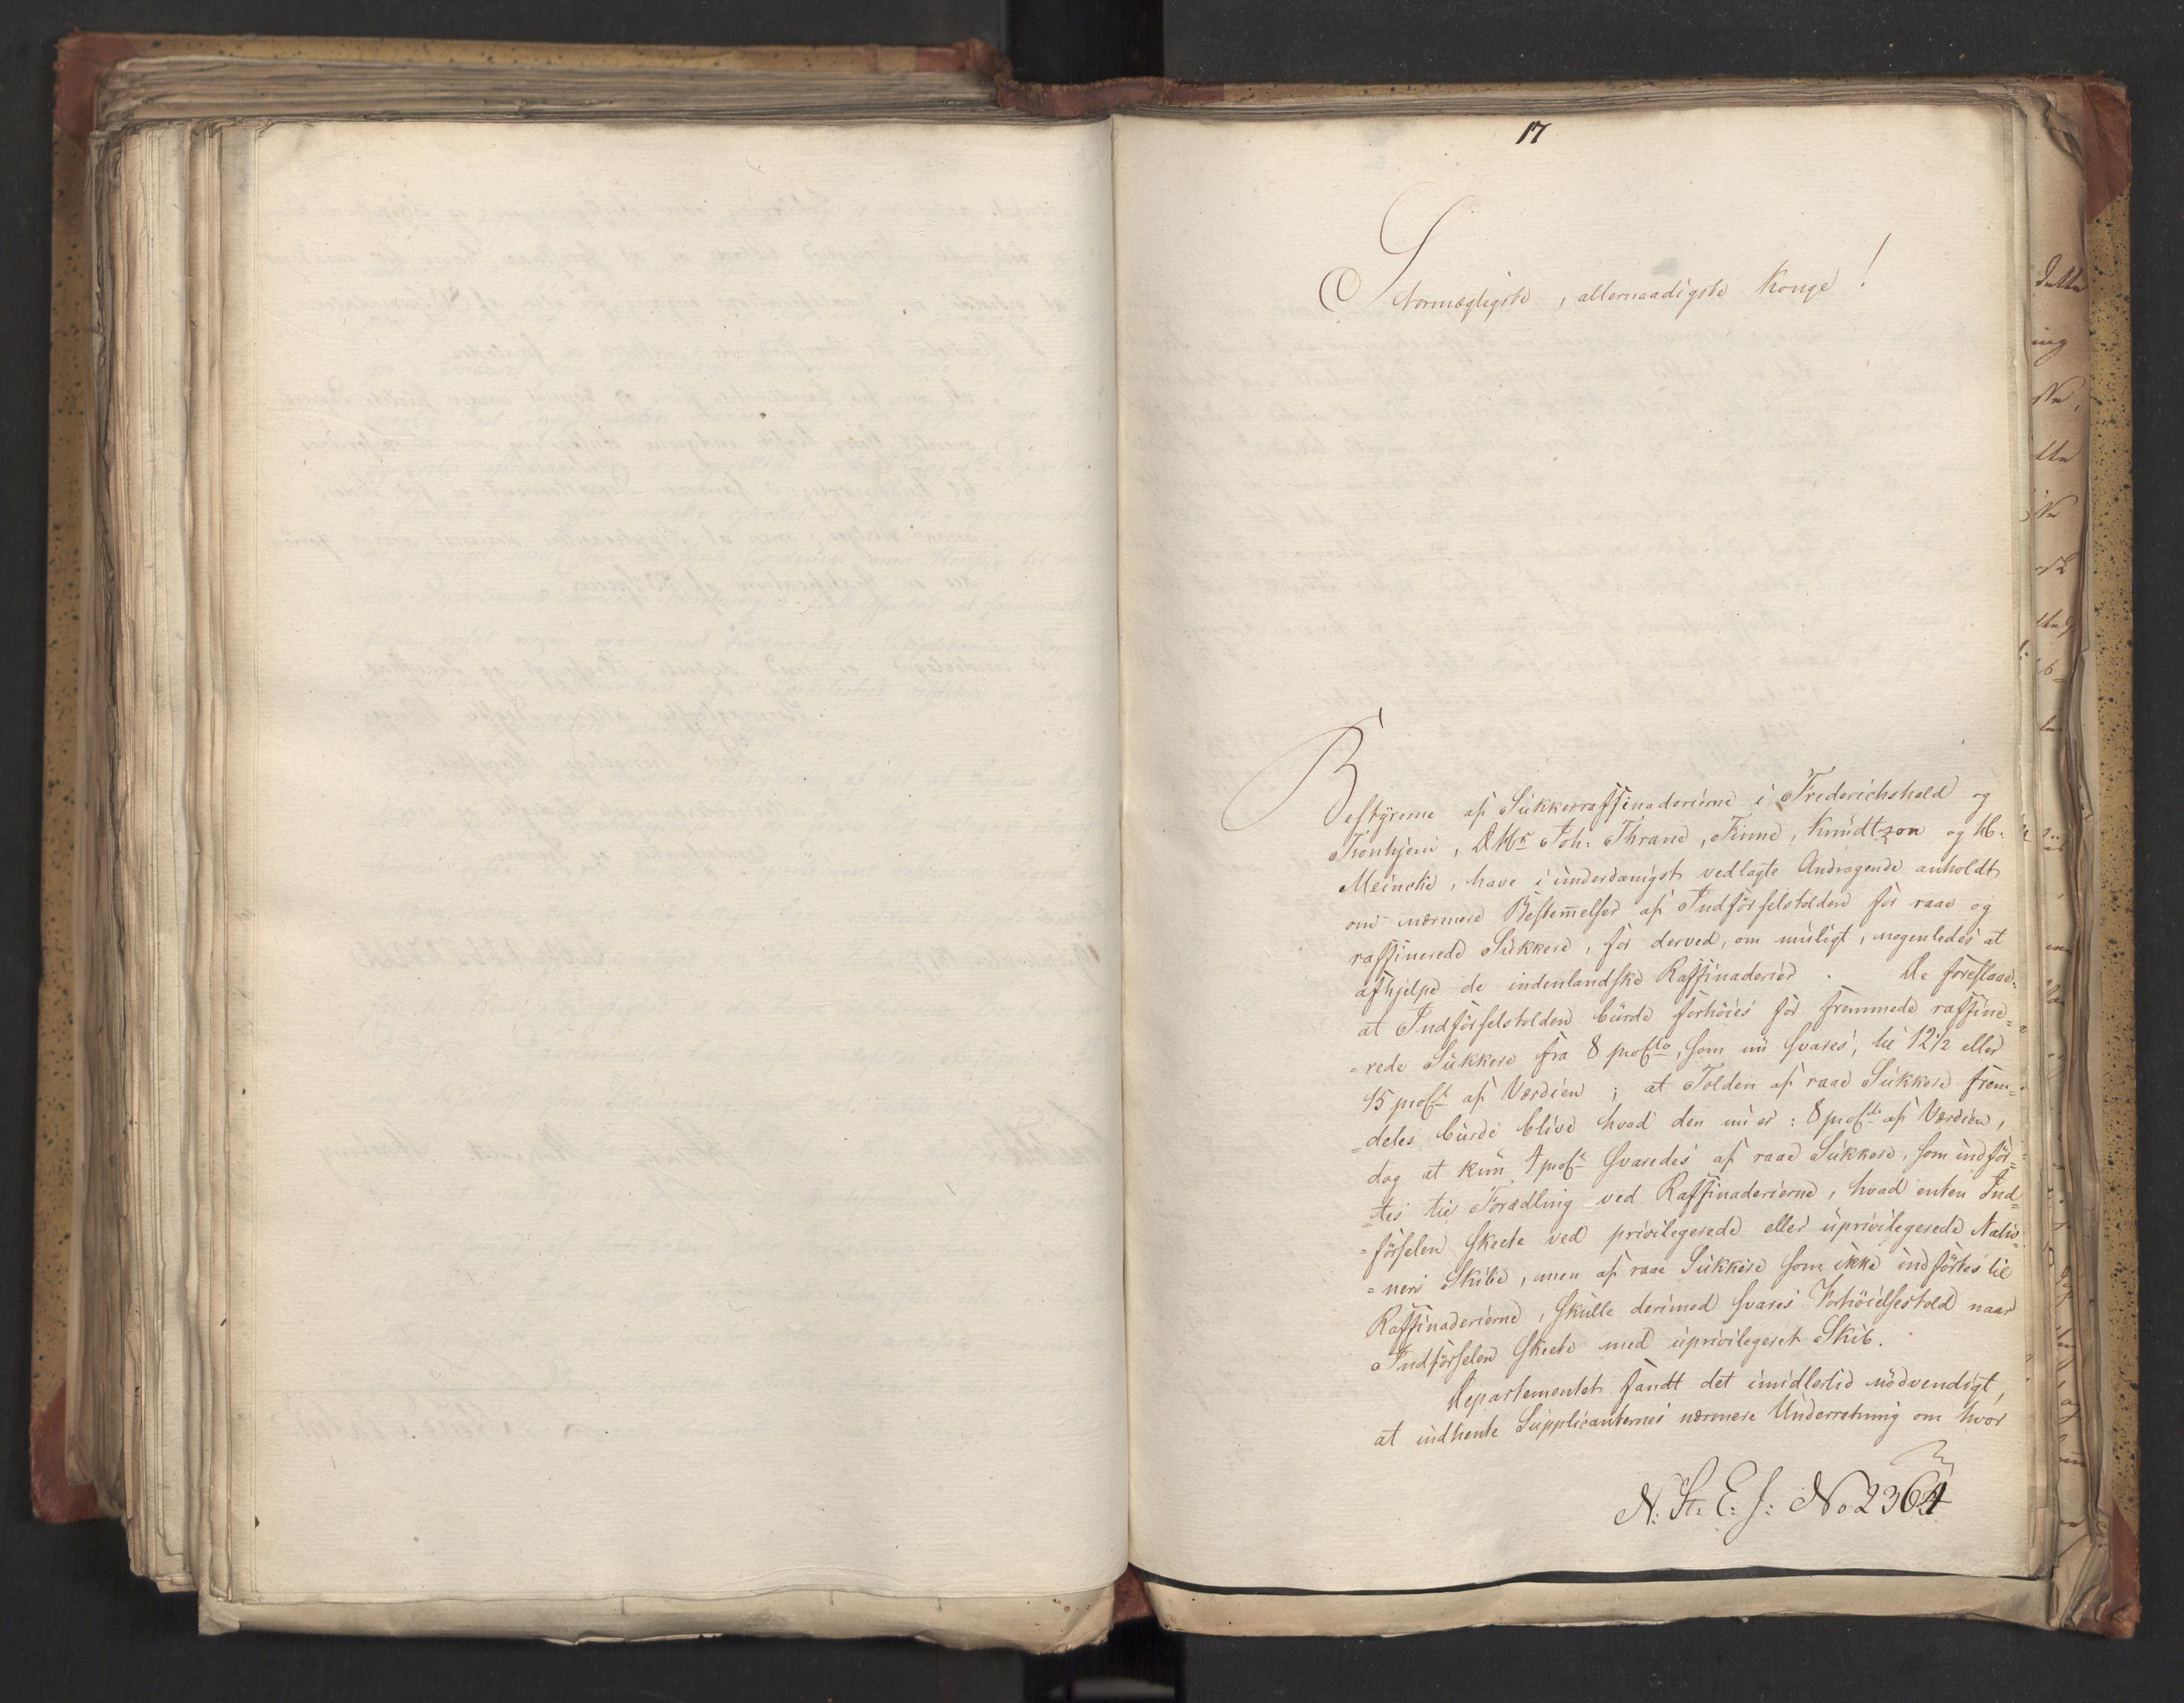 17
Stormægtigste, allernaadigste Konge!
Bestÿrerne af Sükkerraffinaderierne i Friderichshald og
Tronhjem, DHrr Joh: Thrane, Finne, Knüdtzon og H.
Meincke, have i ünderdanigst vedlagte Andragende anholdt
om nærmere Bestem̄elser af Indförselstolden for raae og
raffinerede Sükkere, for derved, om müligt, nogenledes at
afhjelpe de indenlandske Raffinaderier. De foreslaae:
at Indförselstolden bürde forhöies for fremmede raffine=
=rede Sükkere fra 8 proCto, som nü svares, til 12 1/2 eller
15 proCt af Værdien; at Tolden af raae Sükkere frem=
=deles bürde blive hvad den nü er: 8 proCto af Værdien,
dog at kün 4 proCt svaredes af raae Sükkere, som indför=
=tes til Forædling ved Raffinaderierne, hvad enten Ind=
=förselen skeete ved privilegerede eller üprivilegerede Natio=
=ners Skibe, men af raae Sükkere som ikke indförtes til
Raffinaderierne, skülle derimod svares Forhöielsestold naar
Indförselen skeete med üprivilegeret Skib.
Departementet fandt det imidlertid nödvendigt,
at indhente Süpplicanternes nærmere Underretning om hvor
N: St: E: J: No 2364